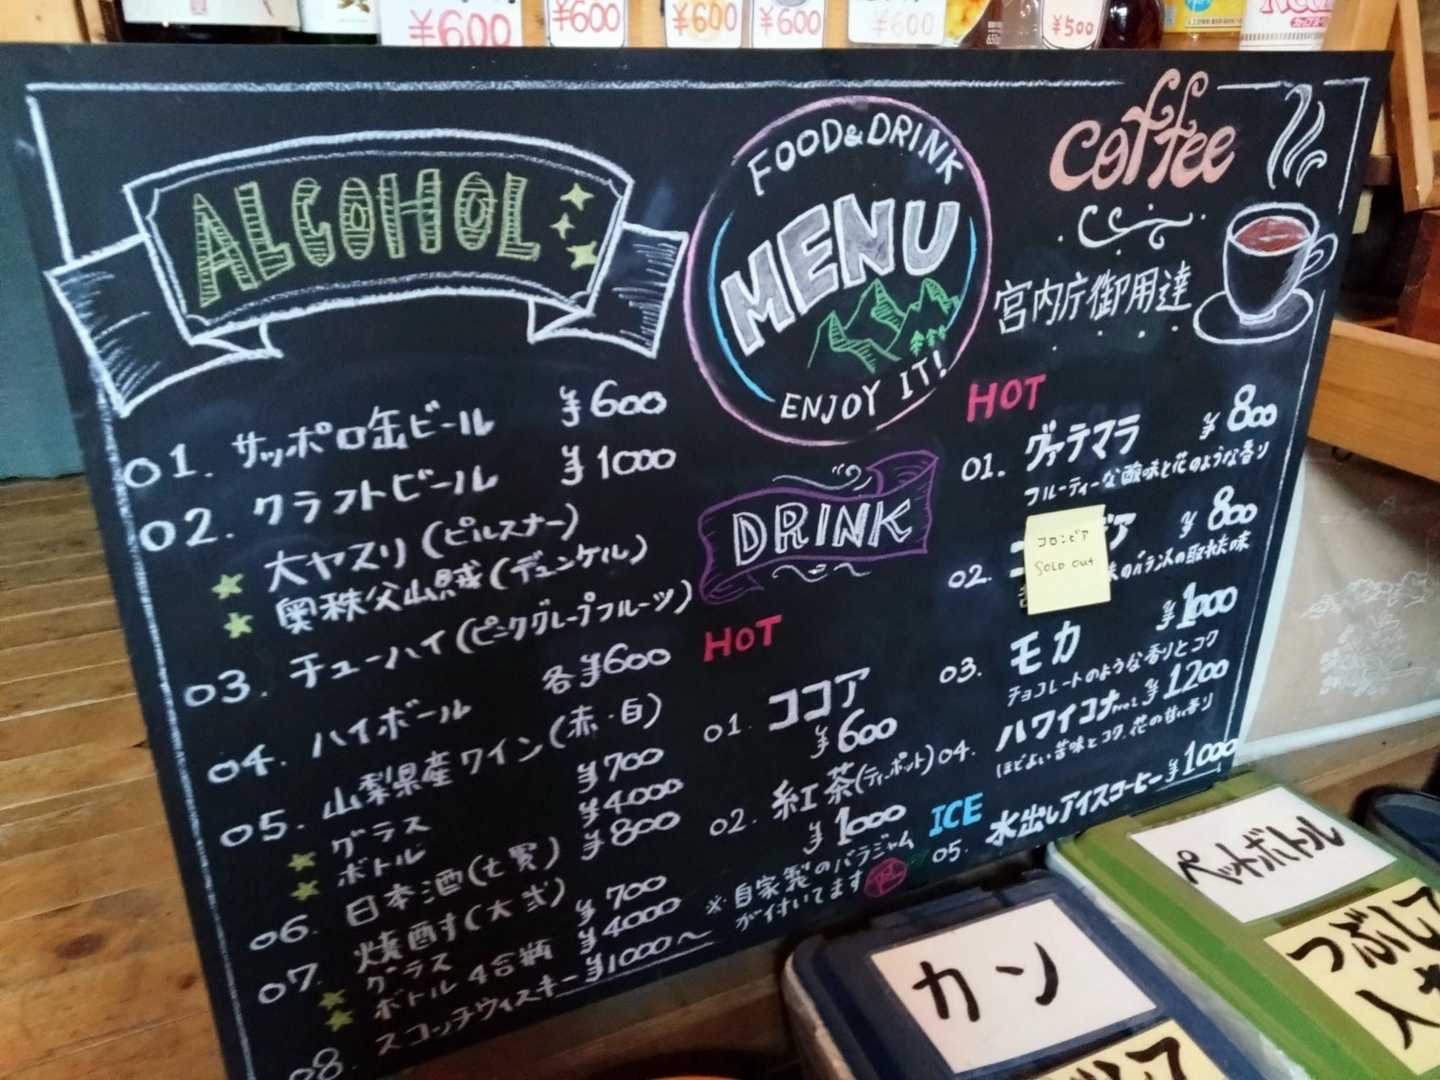 ¥600
¥600
¥600
¥600
¥600
¥500
ALCOHOL
01. サッポロ缶ビール ¥600
02. クラフトビール ¥1000
大ヤスリ(ピルスナー)
奥秩父山賊(デュンケル)
03. チューハイ(ピンクグレープフルーツ)
各¥600
04. ハイボール
05. 山梨県産ワイン(赤・白)
グラス ¥700
ボトル ¥4000
06. 日本酒(七賢) ¥800
07. 焼酎(大弐)
グラス ¥700
ボトル 4合瓶 ¥4000
08. スコッチウィスキー ¥1000～
FOOD&DRINK
MENU
ENJOY IT!
DRINK
HOT
01. ココア
¥600
02. 紅茶(ティーポット)
¥1000
※自家製のバラジャム
が付いてます
coffee
宮内庁御用達
HOT
01. グァテマラ ¥800
フルーティーな酸味と花のような香り
02. ビア ¥800
コロンビア
SOLD OUT
味のバランスの取れた味
03. モカ ¥1000
チョコレートのような香りとコク
04. ハワイコナ ¥1200
ほどよい苦味とコク、花の甘い香り
ICE
05. 水出しアイスコーヒー ¥1000
ペットボトル
つぶして
カン